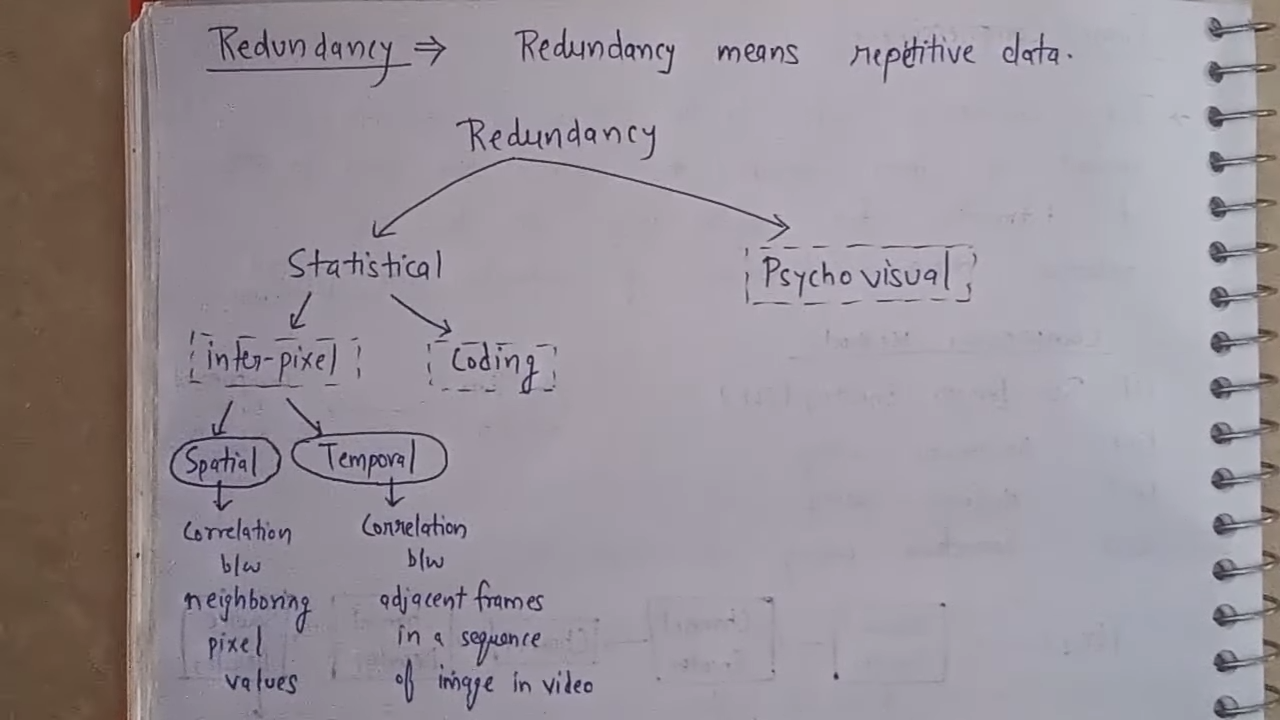 Redundancy ⇒ Redundancy means repetitive data.
Redundancy
Statistical
Psychovisual
inter-pixel
Coding
Spatial
Temporal
Correlation
b/w
neighboring
pixel
values
Correlation
b/w
adjacent frames
in a sequence
of image in video